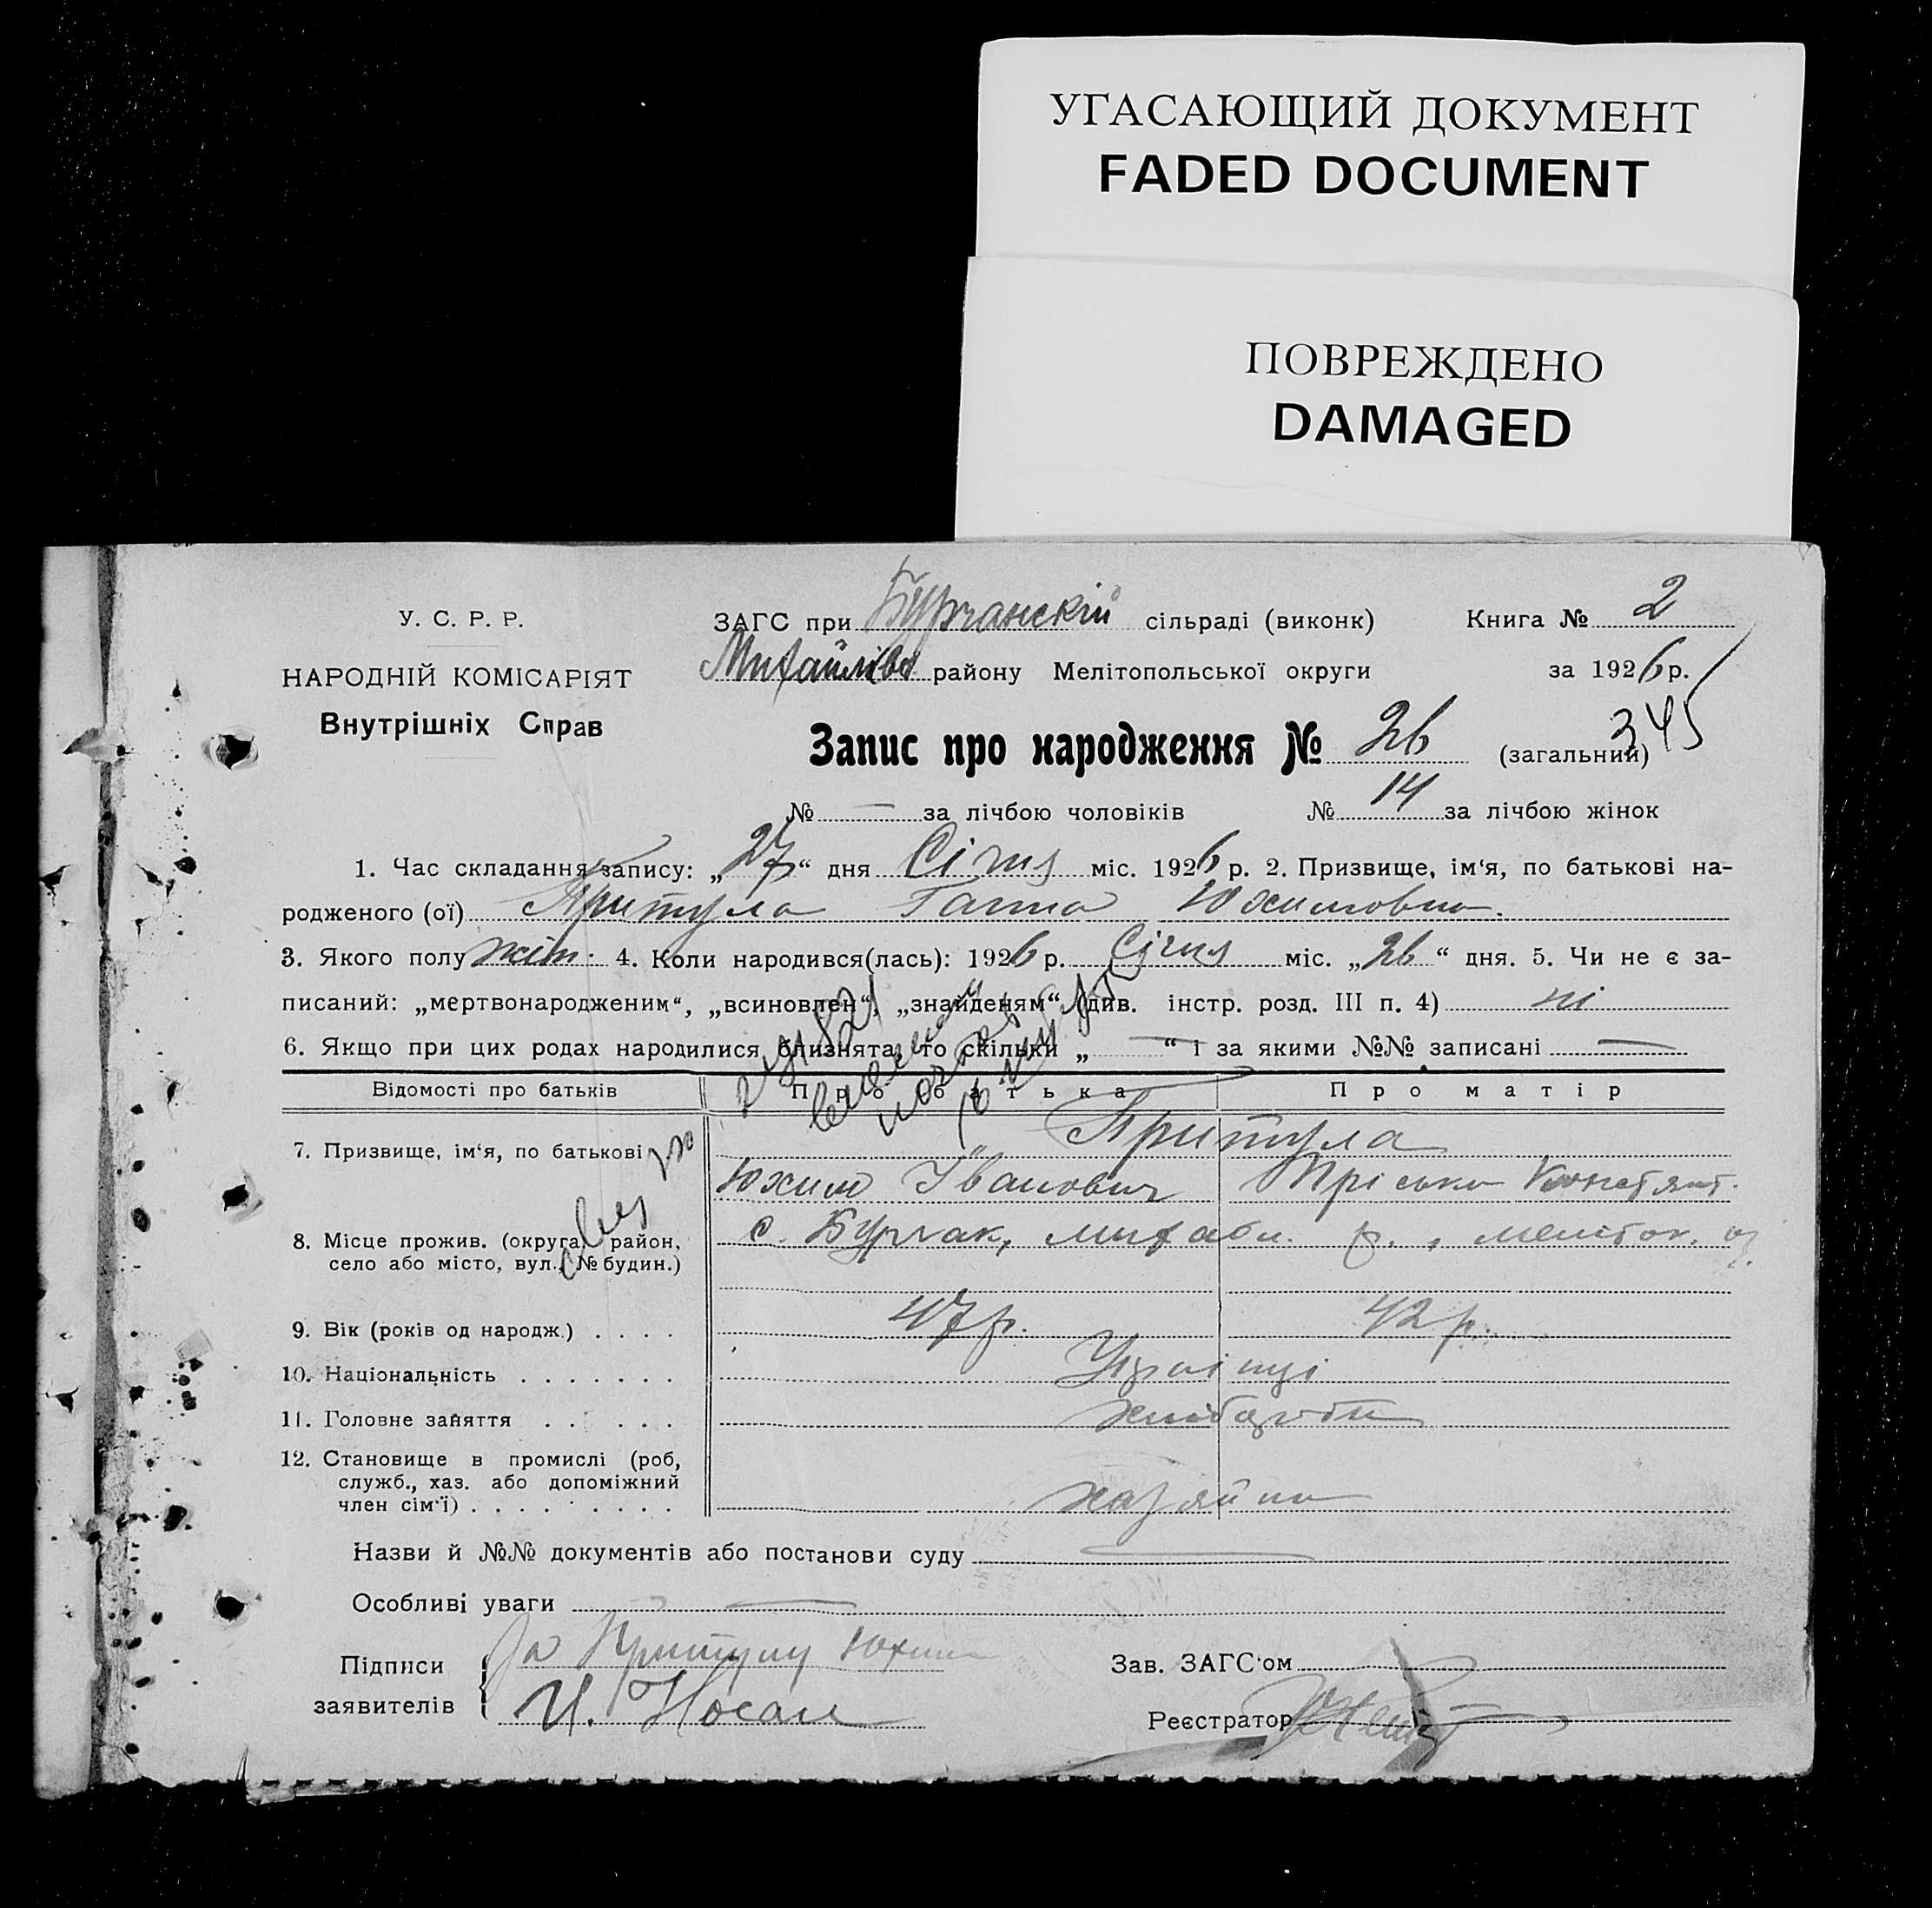 УГАСАЮЩИЙ ДОКУМЕНТ
FADED DOCUMENT
ПОВРЕЖДЕНО
DAMAGED
У. С. Р. Р.
НАРОДНІЙ КОМІСАРІЯТ
Внутрішніх Справ
ЗАГС при Бурчанскій сільраді (виконк) Книга № 2
Михайлівс району Мелітопольської округи за 1926 р.
345
Запис про народження № 26 (загальний)
№ — за лічбою чоловіків № 14 за лічбою жінок
1. Час складання запису: „27“ дня Січня міс. 1926 р. 2. Призвище, ім‘я, по батькові на-
родженого (ої) Притула Ганна Юхимовна.
3. Якого полу жін. 4. Коли народився(лась): 1926 р. Січня міс. „26“ дня. 5. Чи не є за-
писаний: „мертвонародженим“, „всиновлен“, „знайденям“ (див. інстр. розд. III п. 4) ні
6. Якщо при цих родах народилися близнята, то скільки „—“ і за якими №№ записані —
Відомості про батьків Про батька Про матір
7. Призвище, ім‘я, по батькові Притула
Юхим Іванович Пріська Констянт.
8. Місце прожив. (округа, район, с. Бурчак, Михайл. р., меліток. ок.
село або місто, вул., № будин.)
9. Вік (років од народж.) . . . . 47 р. 42 р.
10. Національність . . . . . . . Українці
11. Головне заняття . . . . . . хлібороби
12. Становище в промислі (роб,
служб., хаз. або допоміжний
член сім‘ї) . . . . . . . . . хазяїни
Назви й №№ документів або постанови суду —
Особливі уваги —
Підписи За Притулу Юхима
заявителів И. Носаль
Зав. ЗАГС‘ом
Реєстратор